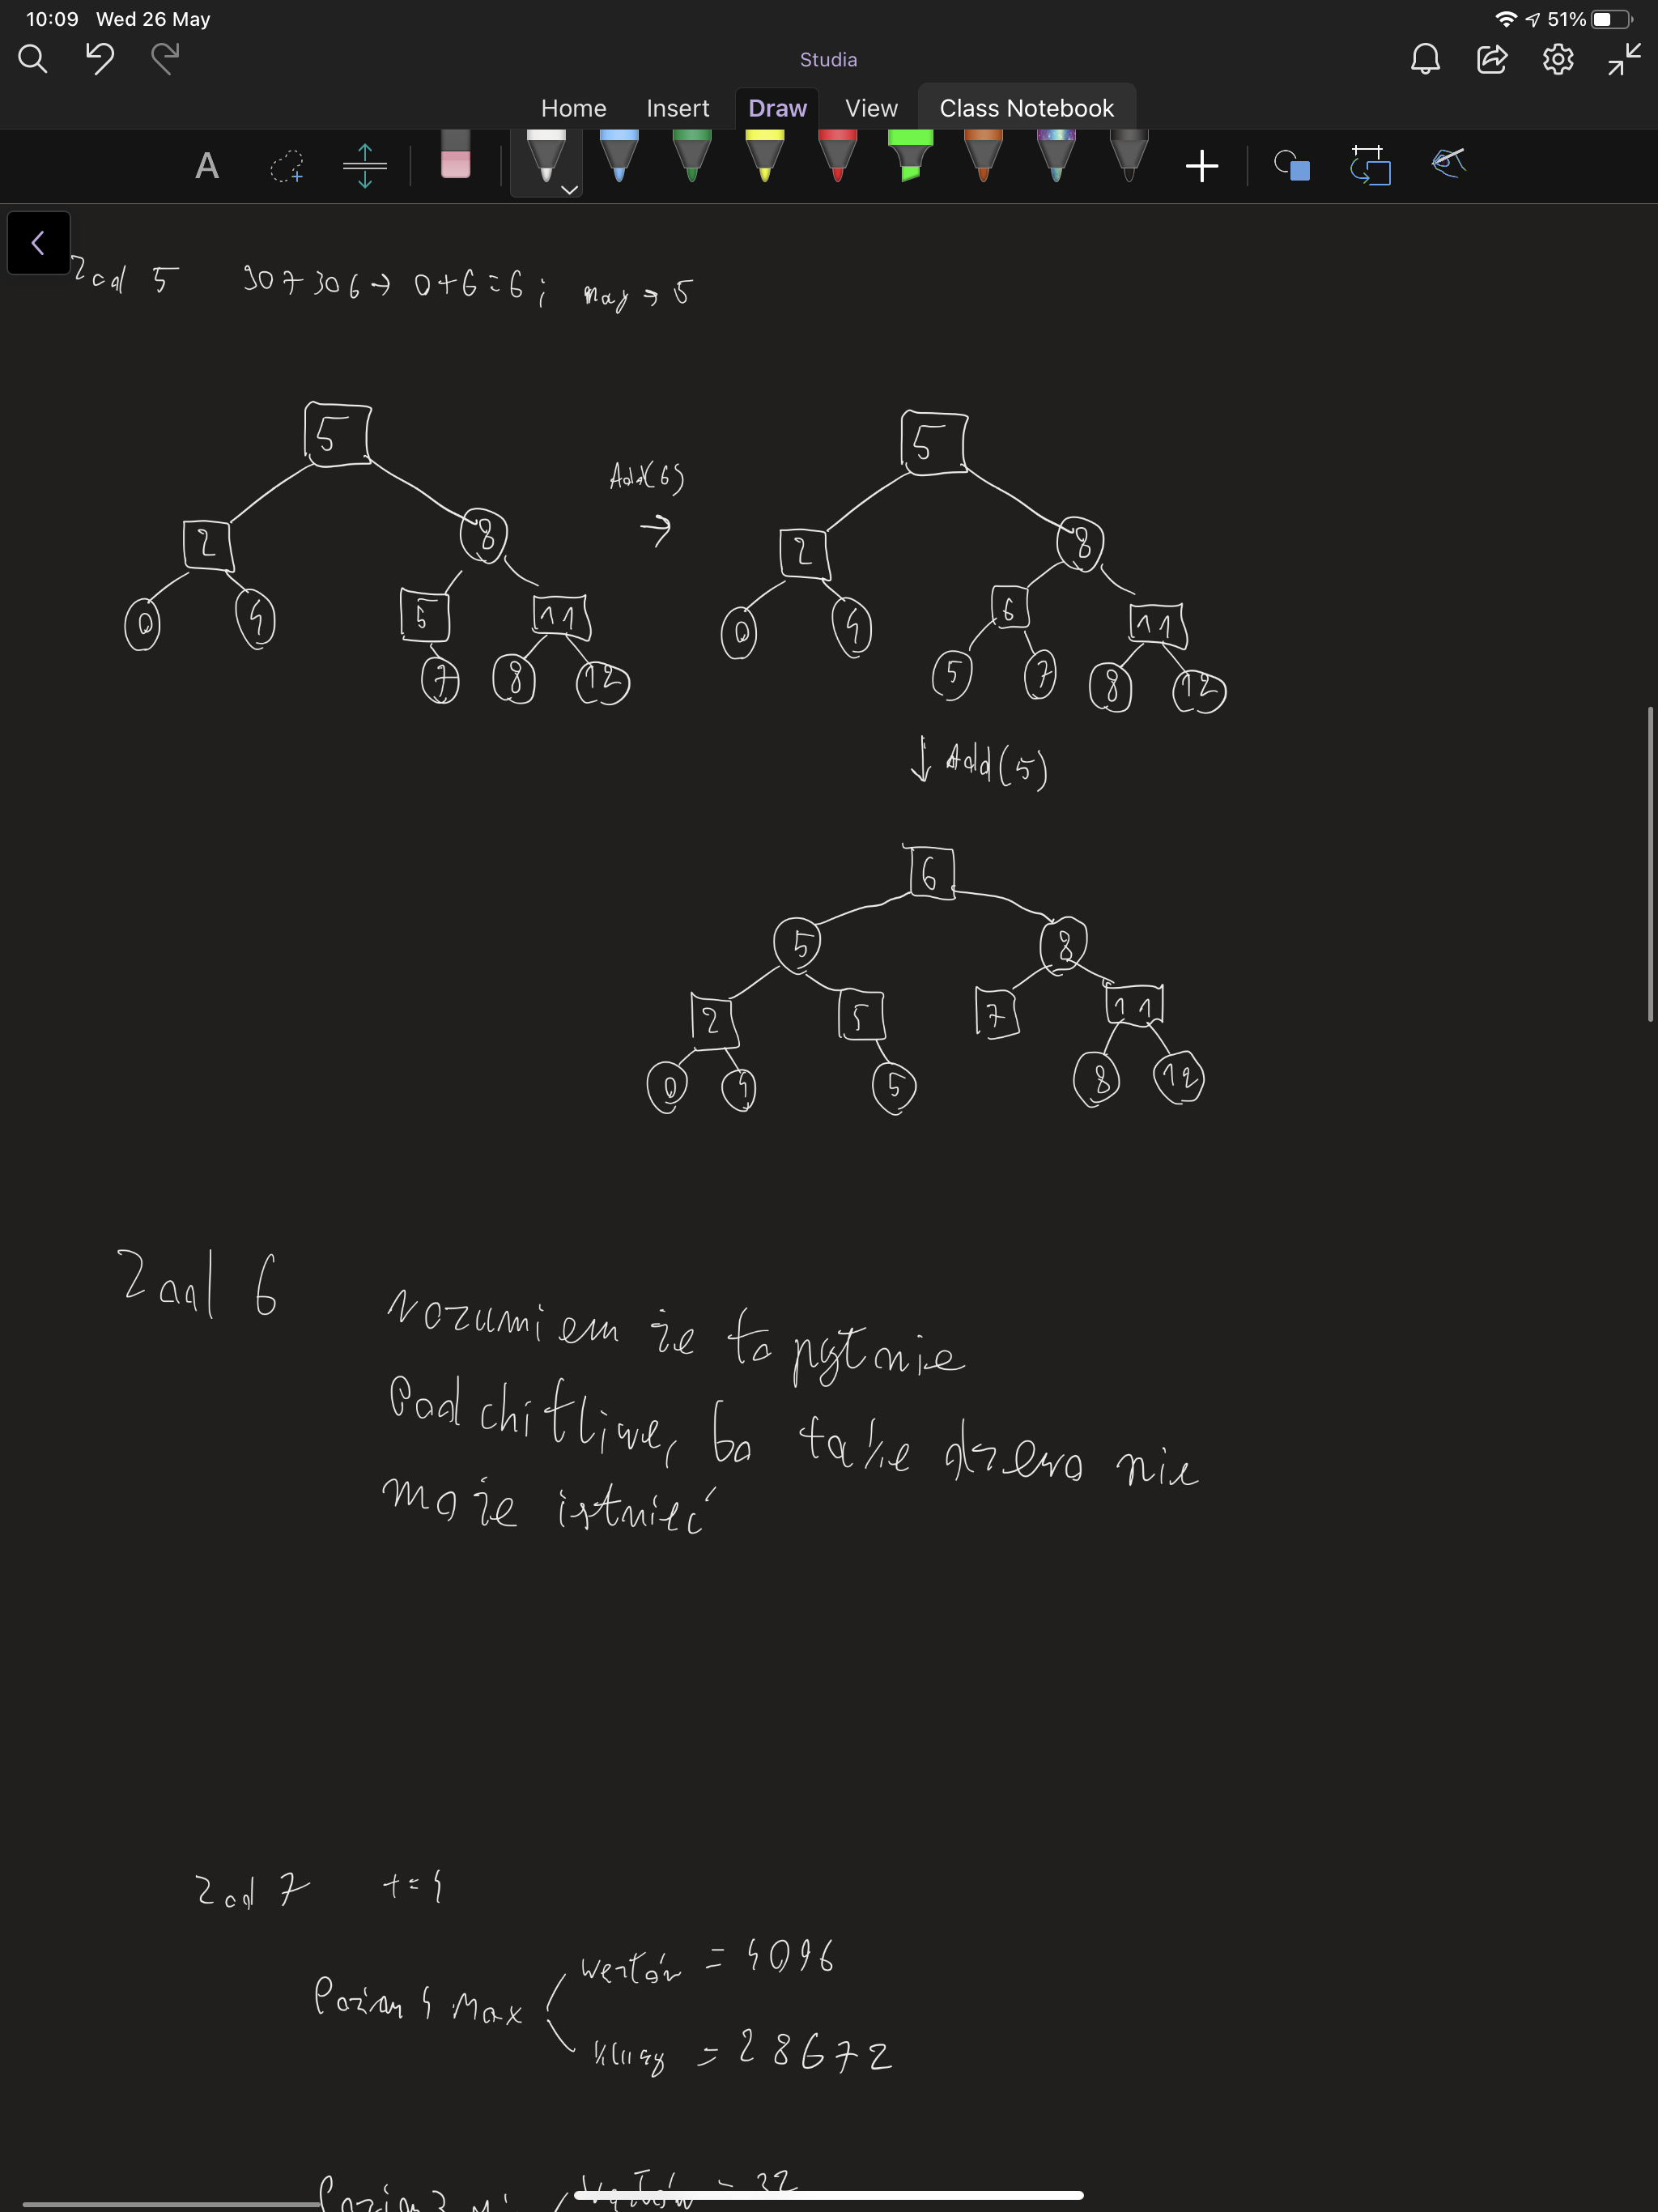 10:09 Wed 26 May 51%
Studia
Home Insert Draw View Class Notebook
A
Zad 5 307306 → 0+6=6; → 5
5 5
Add(6)
→
2 8 2 8
0 4 5 11 0 4 6 11
7 8 12 5 7 8 12
↓ Add(5)
6
5 8
2 5 7 11
0 4 5 8 12
Zad 6 rozumiem że to pytnie
Podchitliwe, bo takie drzewo nie
może istnieć
Zad 7 t=4
Poziom 4 Max
Wenzłów = 4096
kluczy = 28672
Poziom 3 = 32